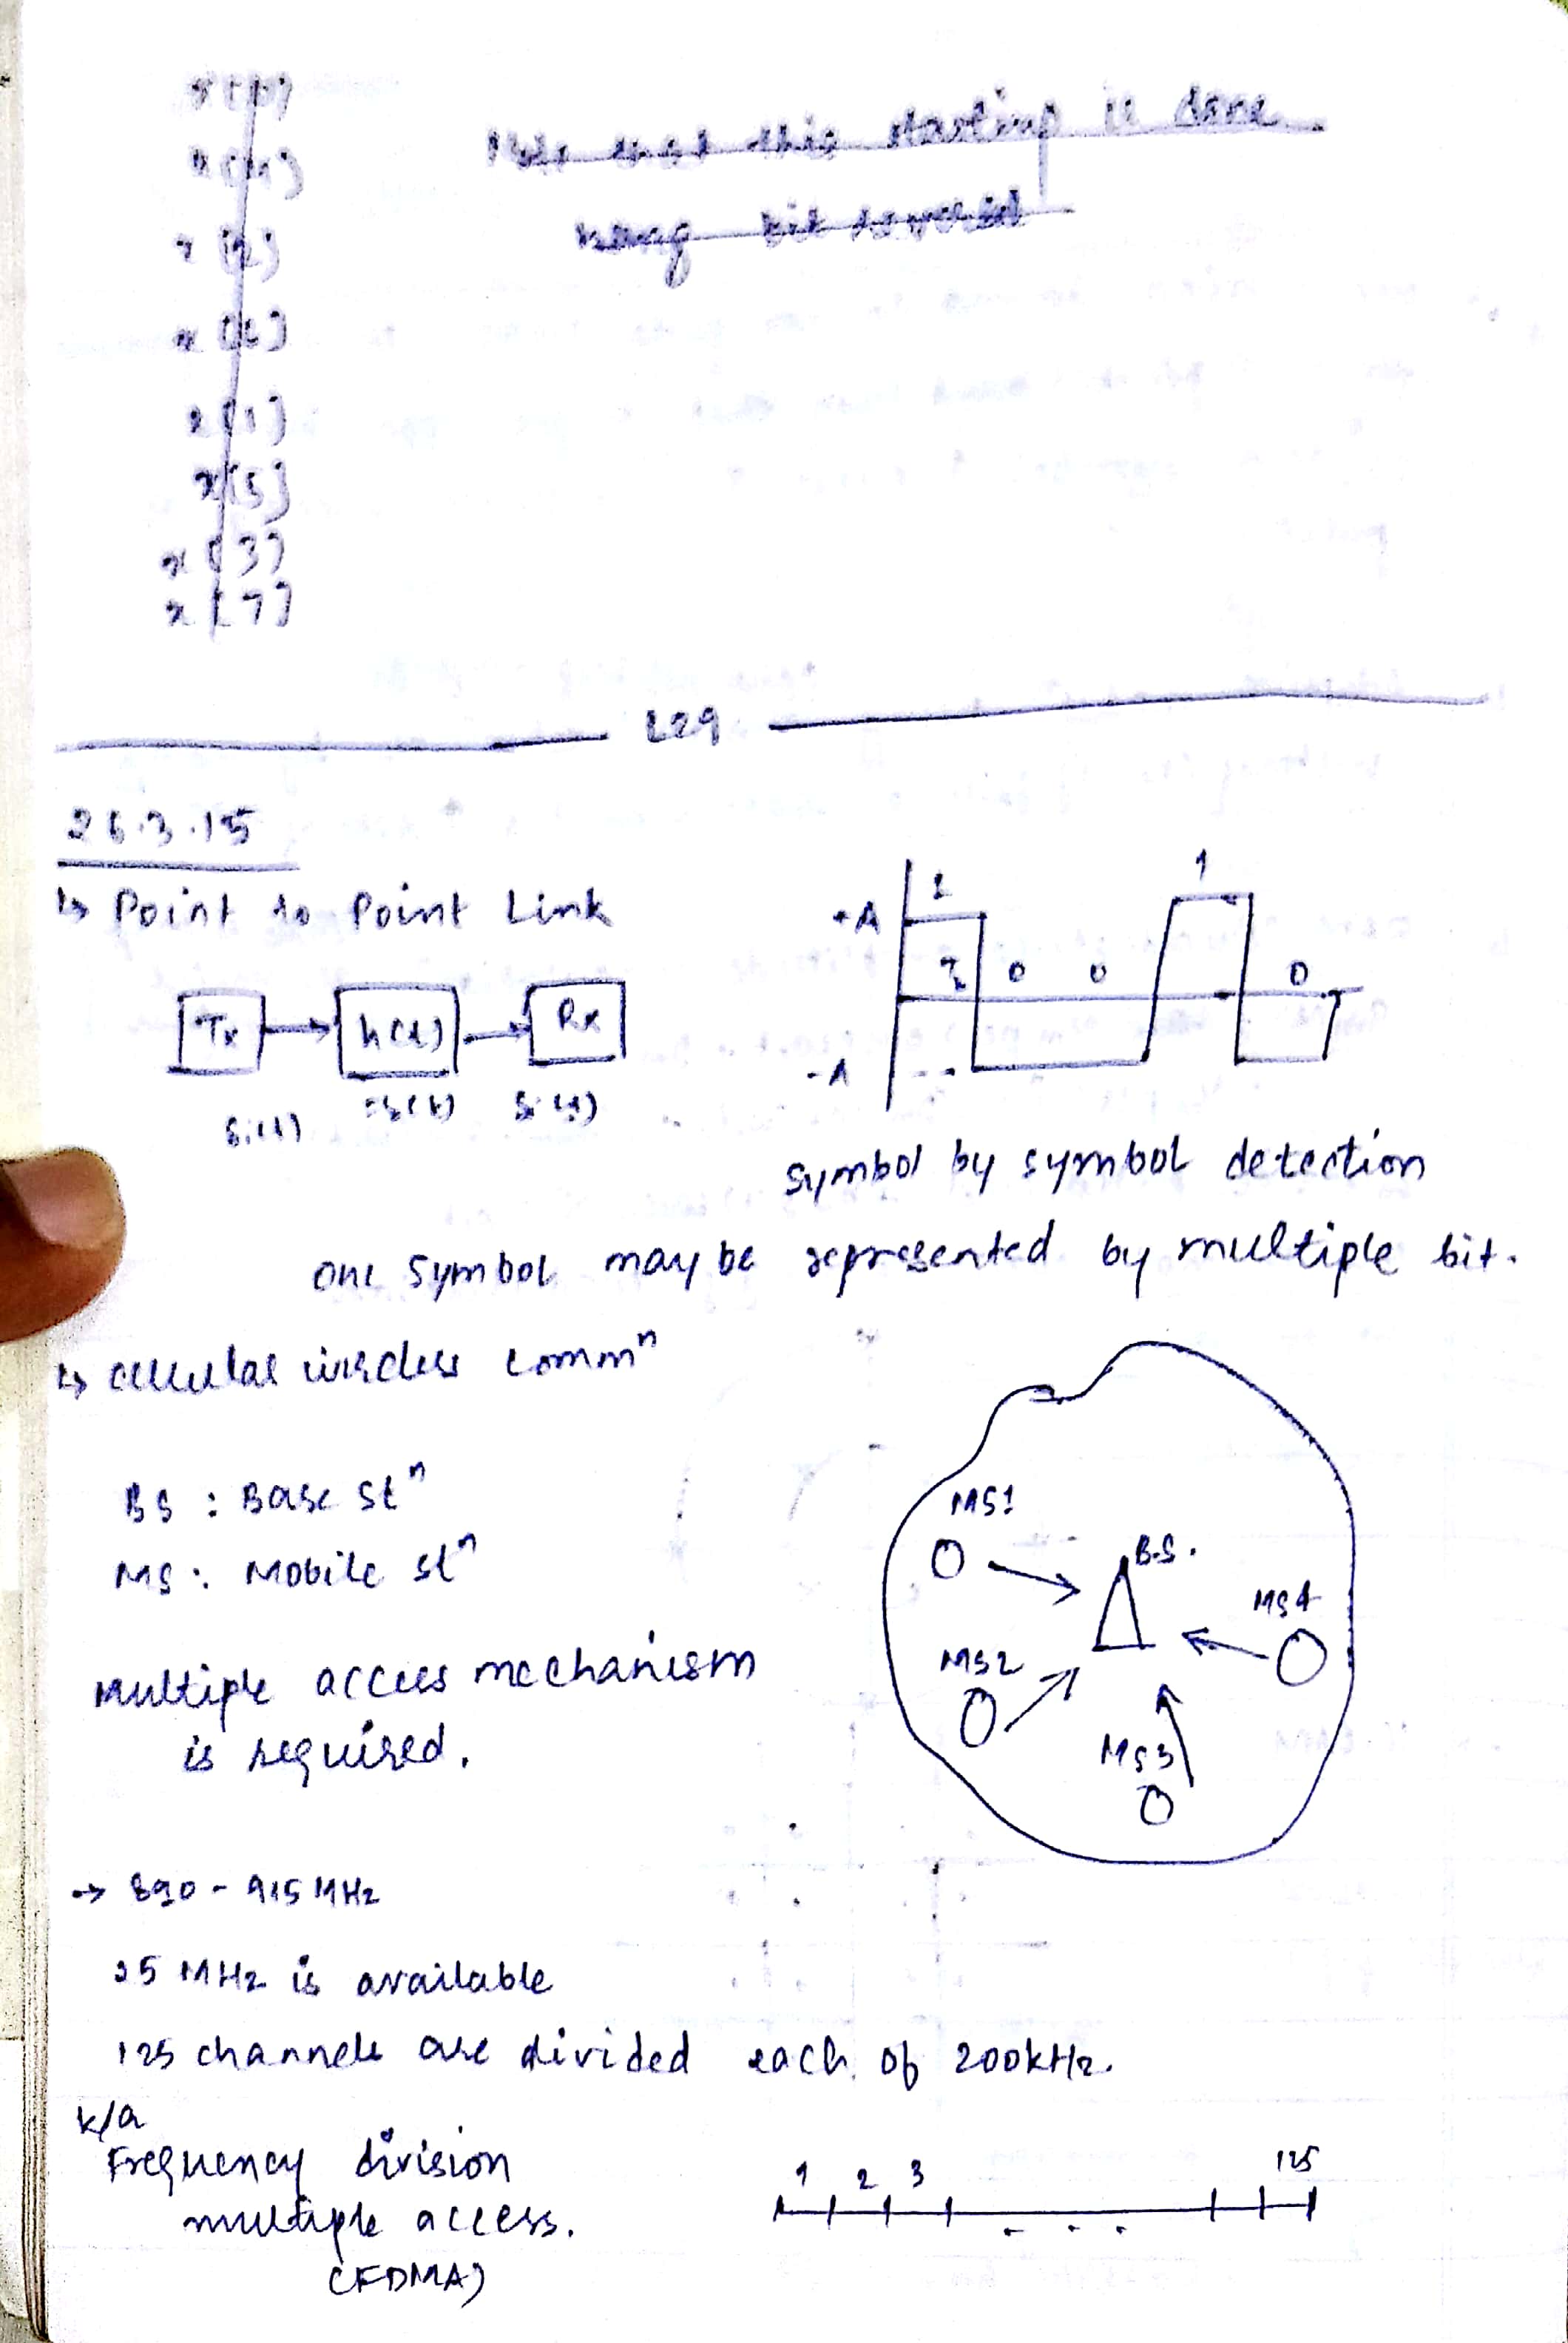 x[0]
x[4]
x[2]
x[6]
x[1]
x[5]
x[3]
x[7]
Note that this starting is done
using bit
L29
26.3.15
↳ Point to Point Link
Tx
h(t)
Rx
+A
-A
1
0
0
1
0
Symbol by symbol detection
one symbol may be represented by multiple bit.
↳ cellular wireless commⁿ
BS : Base stⁿ
MS : Mobile stⁿ
Multiple access mechanism
is required.
MS1
B.S.
MS4
MS2
MS3
→ 890 - 915 MHz
25 MHz is available
125 channels are divided each of 200kHz.
k/a
Frequency division
multiple access.
(FDMA)
1 2 3 ... 125